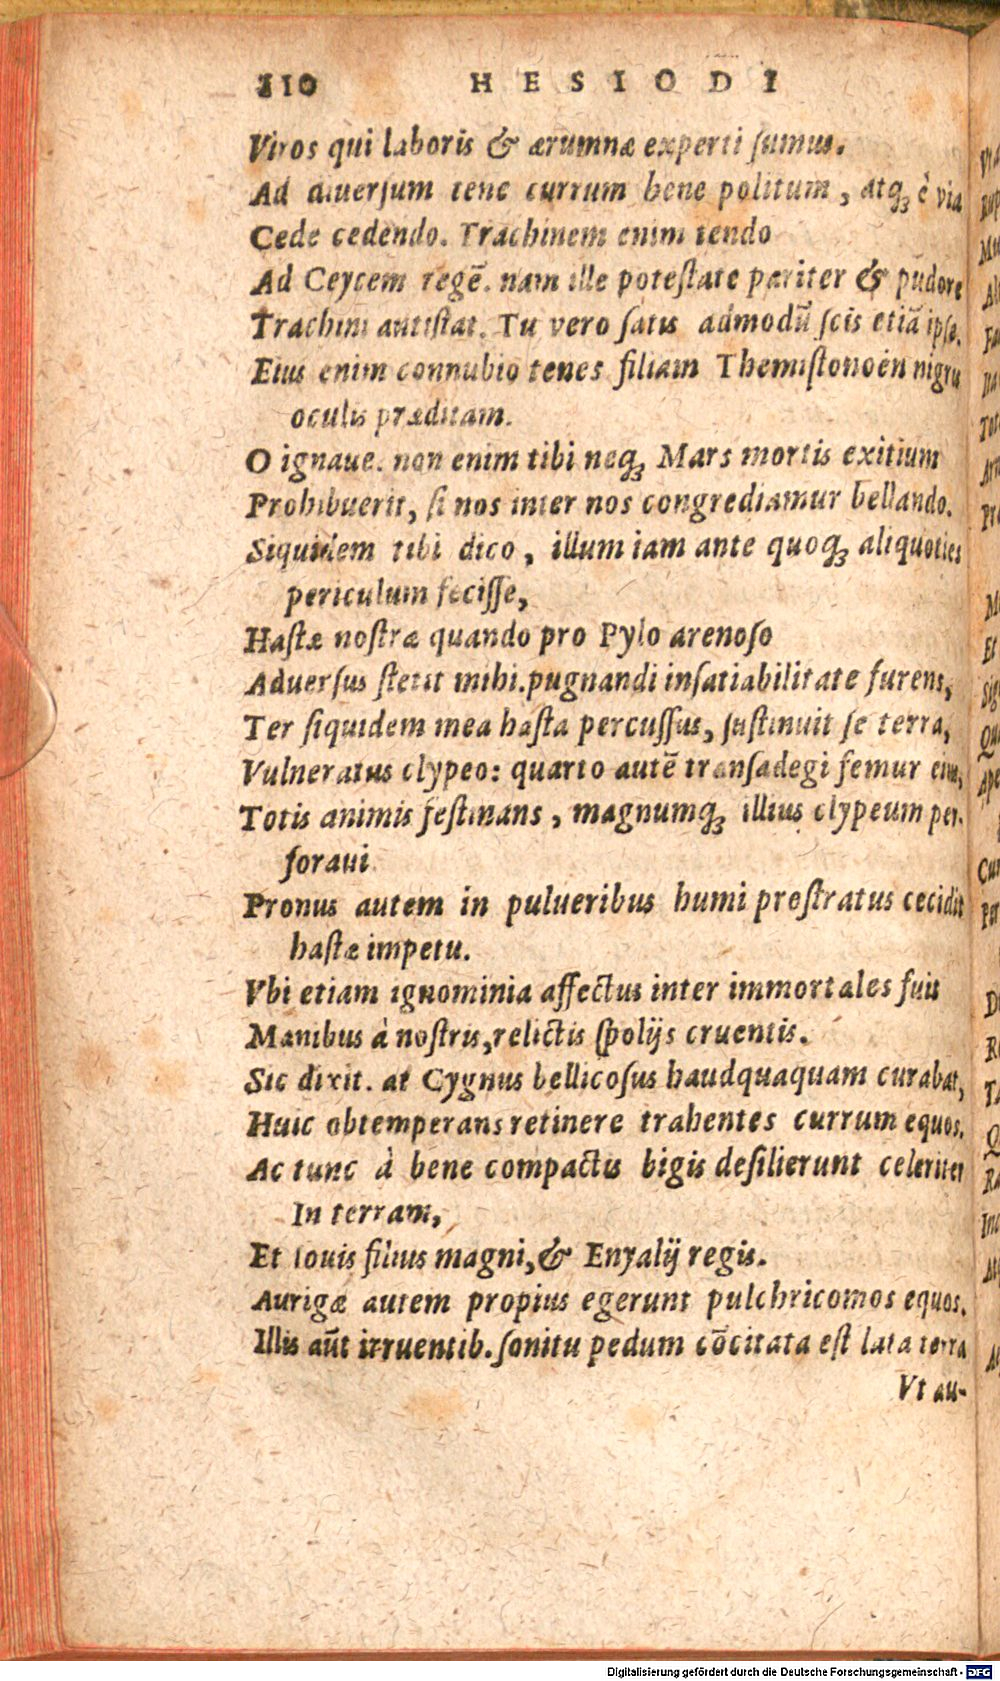 110 HESIODI
Viros qui laboris & ærumnæ experti ſumus.
Ad aduerſum tene currum bene politum, atqꝫ è via
Cede cedendo. Trachinem enim tendo
Ad Ceycem regē. nam ille poteſtate pariter & pudore
Trachini antiſtat. Tu vero ſatis admodū ſcis etiā ipſe.
Eius enim connubio tenes filiam Themiſtonoën nigris
oculis præditam.
O ignaue. non enim tibi neqꝫ Mars mortis exitium
Prohibuerit, ſi nos inter nos congrediamur bellando.
Siquidem tibi dico, illum iam ante quoqꝫ aliquoties
periculum feciſſe,
Haſtæ noſtræ quando pro Pylo arenoſo
Aduerſus ſtetit mihi. pugnandi inſatiabilitate furens,
Ter ſiquidem mea haſta percuſſus, ſuſtinuit ſe terra,
Vulneratus clypeo: quarto autē transadegi femur eius,
Totis animis feſtinans, magnumqꝫ illius clypeum per-
foraui
Pronus autem in pulueribus humi proſtratus cecidit
haſtæ impetu.
Vbi etiam ignominia affectus inter immortales fuit
Manibus à noſtris, relictis ſpolijs cruentis.
Sic dixit. at Cygnus bellicoſus haudquaquam curabat,
Huic obtemperans retinere trahentes currum equos.
Ac tunc à bene compactis bigis deſilierunt celeriter
In terram,
Et Iouis filius magni, & Enyalij regis.
Aurigæ autem propius egerunt pulchricomos equos.
Illis aūt irruentib. ſonitu pedum cōcitata eſt lata terra
Vt au-
Digitalisierung gefördert durch die Deutsche Forschungsgemeinschaft - DFG